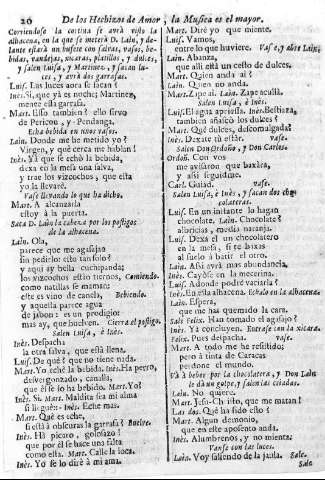 20 De los Hechizos de Amor, la Musica es el mayor.
Corriendose la cortina se avrà visto la
alhacena, en la que se meterà D. Lain, y de-
lante estarà un bufete con salvas, vasos, be-
bidas, vandejas, xicaras, platillos, y dulces,
y salen Luisa, y Martinez, y sacan lu-
ces, y avrà dos garrafas.
Luis. Las luces aora se sacan?
Inès. Si, que yà es noche; Martinez,
menee esta garrafa.
Mart. Esso tambien? ello sirvo
de Pericon, y Pendanga.
Echa bebida en unos vasos.
Lain. Donde me he metido yo?
Virgen, y què cerca me hablan!
Inès. Yà que se echò la bebida,
dexa en la mesa una salva,
y trae los vizcochos, que esta
yo la llevarè.
Vase llevando lo que ha dicho.
Mart. A alcanzarla
estoy à la puerta.
Saca D. Lain la cabeza por los postigos
de la alhacena.
Lain. Ola,
parece que me agasajan
sin pedirlo: esto tan solo?
y aqui ay bella cuchipanda;
los vizcochos estàn tiernos, Comiendo.
como natillas se maman:
este es vino de canela, Bebiendo.
y aquella parece agua
de jabon: es un prodigio:
mas ay, que buelven. Cierra el postigo.
Salen Luisa, è Inès.
Inès. Despacha:
la otra salva, que està llena.
Luis. De què? que no tiene nada.
Mart. Yo echè la bebida. Inès. Ha perro,
desvergonzado, canalla,
que èl se lo ha bebido. Mart. Yo?
Inès. Si. Mart. Maldita sea mi alma
si lleguè: Inès. Eche mas.
Mart. Què es eche,
si està à obscuras la garrafa? Buelve.
Inès. Hà picaro, golosazo
que por èl se hace una falta
como esta. Mart. Calle la loca.
Inès. Yo se lo dirè à mi ama.
Mart. Dirè yo que miente.
Luis. Vamos,
entre lo que huviere. Vase, y abre Lain.
Lain. Abanza,
que alli està un cesto de dulces.
Mart. Quien anda aì?
Lain. Quien no anda.
Mart. Zipe aì. Lain. Zape acullà.
Salen Luisa, è Inès.
Luis. El agua apriessa. Inès. Bestiaza,
tambien añascò los dulces?
Mart. Què dulces, descomulgada?
Inès. Dexate tù estàr. Vase.
Salen Don Ordoño, y Don Carlos.
Ordoñ. Con vos
me avisaron que baxàra,
y assi seguidme.
Carl. Guiad. vase.
Salen Luisa, è Inès, y sacan dos cho-
colateras.
Luis. En un instante lo hagan
chocolate. Lain. Chocolate?
albricias, media naranja.
Luis. Dexa el un chocolatero
en la mesa, si se baxas
al suelo à batir el otro.
Lain. Assi avrà mas abundancia.
Inès. Cayòse en la mecerina.
Luis. Adonde podrè variarla?
Inès. En esta alhacena. Echalo en la alhacena.
Lain. Espera,
que me has quemado la cara.
Sale Felix. Han tomado el agasajo?
Inès. Yà concluyen. Entrase con la xicara.
Felix. Pues despacha. vase.
Mart. A todo me he resistido;
pero à tinta de Caracas
perdone el mundo.
Và à beber por la chocolatera, y Don Lain
le dà un golpe, y salen las criadas.
Lain. No quiere.
Mart. Jesu-Christo, que me matan!
Las dos. Què ha sido esto?
Mart. Algun demonio,
que en este aposento anda.
Inès. Alumbrenos, y no mienta.
Vanse con las luces.
Lain. Voy saliendo de la jaula. Sale.
Sale